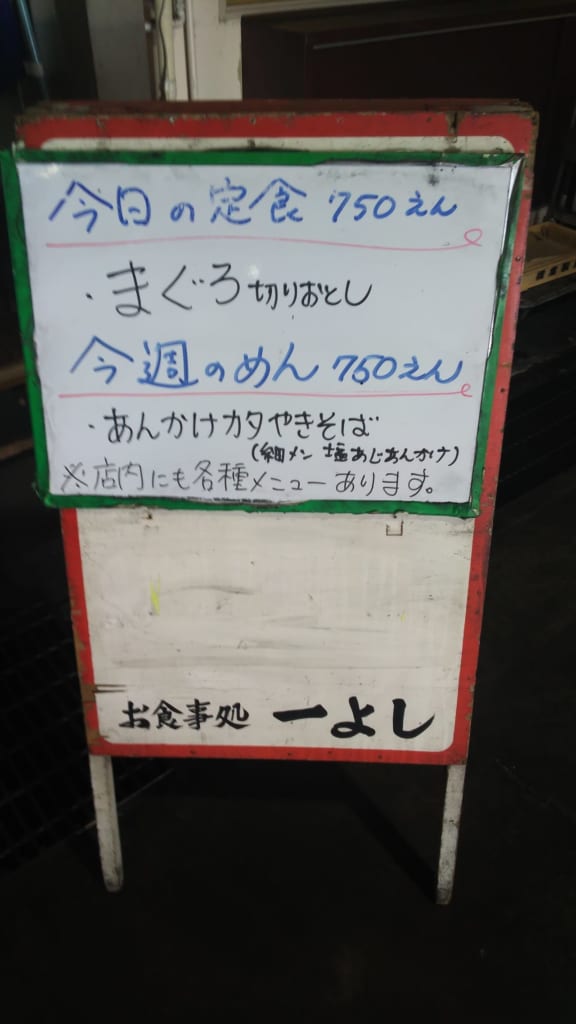 今日の定食 750えん
・まぐろ切りおとし
今週のめん 750えん
・あんかけカタやきそば
(細メン 塩あじあんかけ)
※店内にも各種メニューあります。
お食事処 一よし